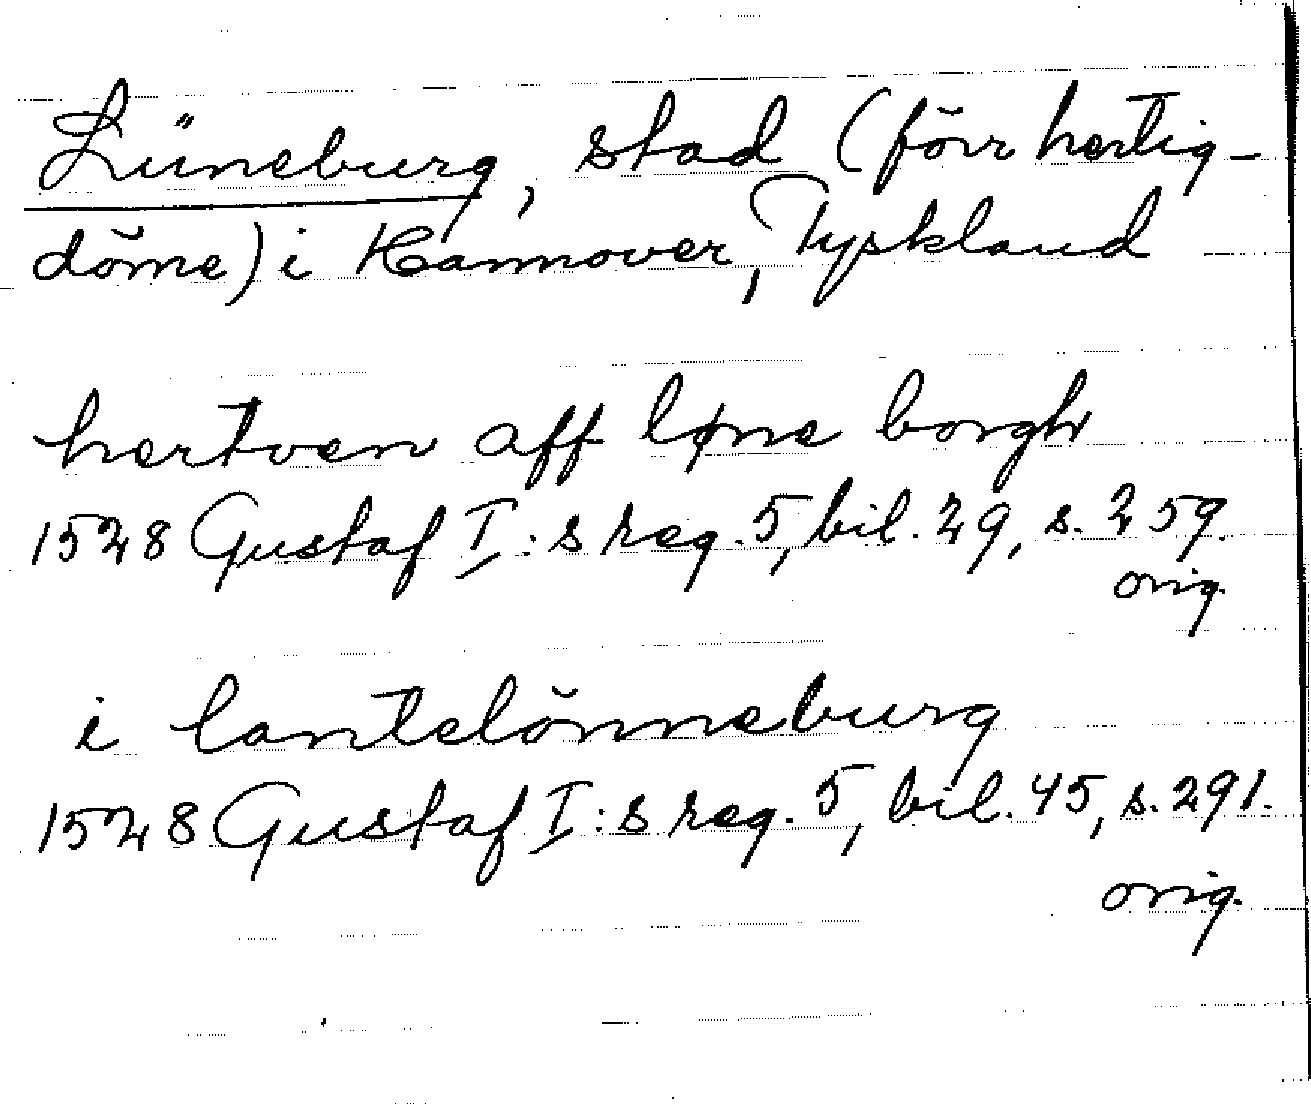 Lüneburg, stad (förr hertig-
döme) i Hannover, Tyskland
hertven aff løne borgh
1528 Gustaf I:s reg. 5, bil. 29, s. 259.
orig.
i lantelönneburg
1528 Gustaf I:s reg. 5, bil. 45, s. 291.
orig.